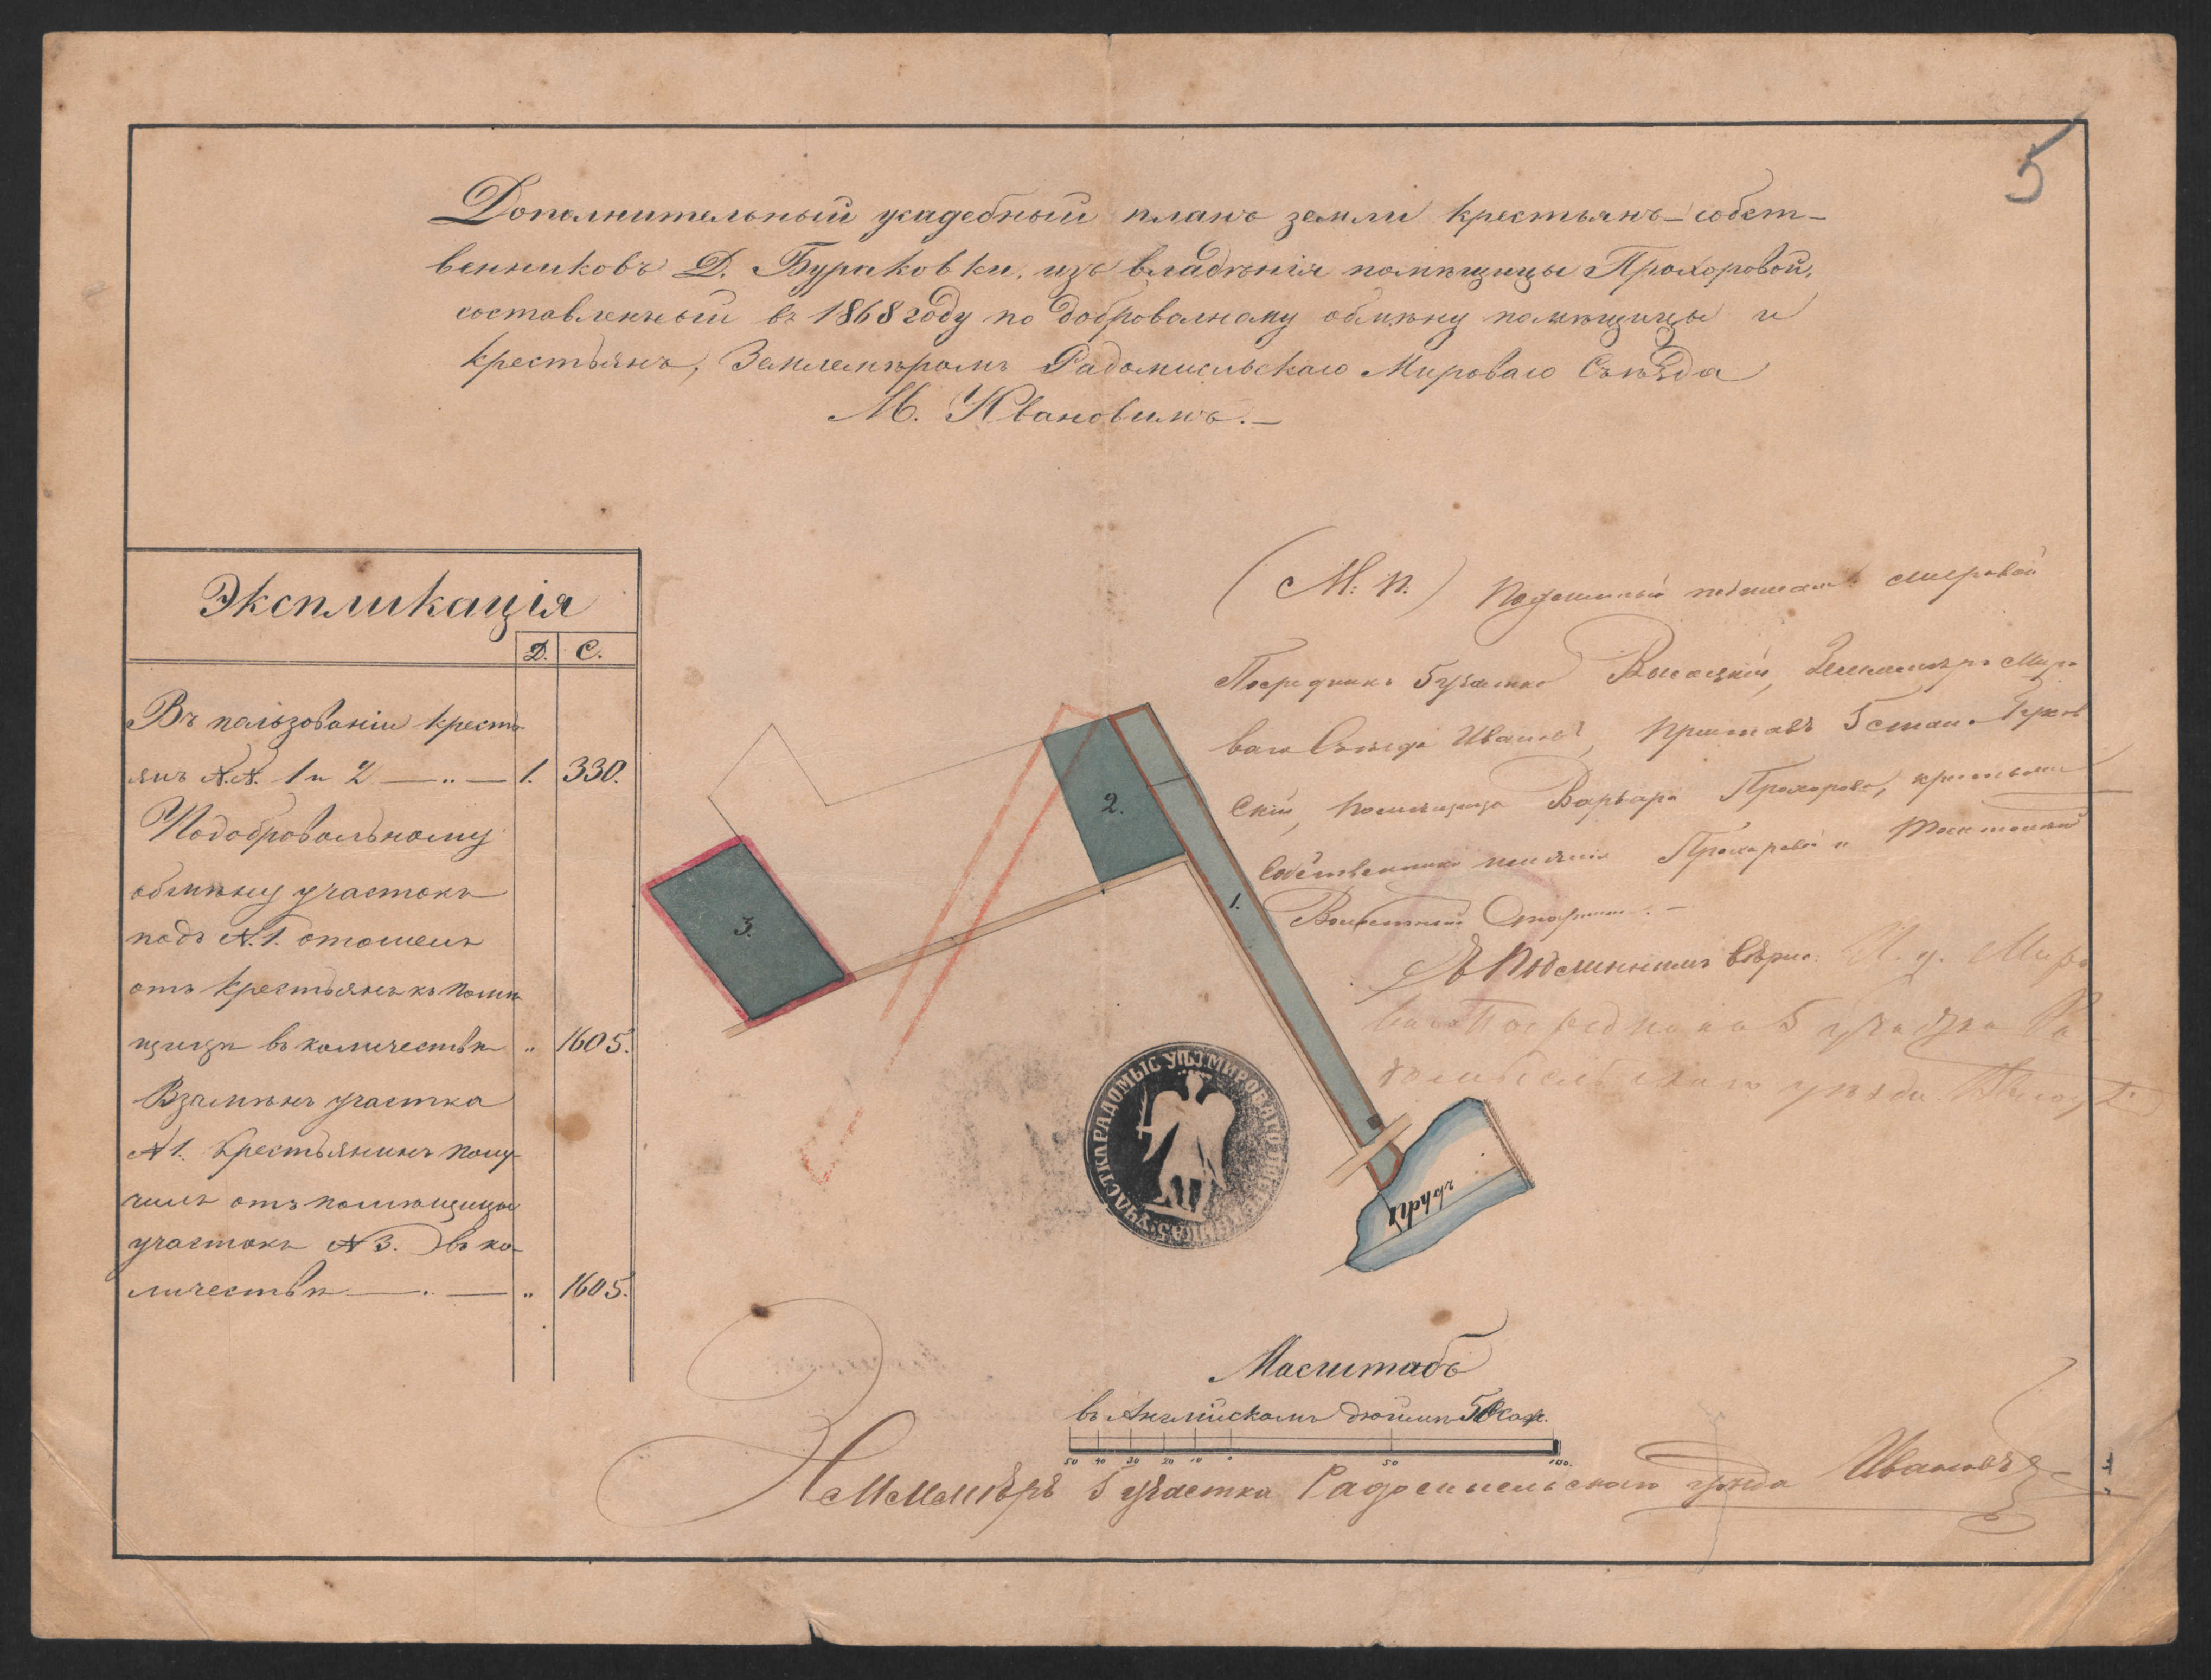 5
Дополнительный усадебный планъ земли крестьянъ-собст-
венниковъ Д. Бураковки, изъ владѣнія помѣщицы Прохоровой,
составленный въ 1868 году по добровалному обмѣну помѣщицы и
крестьянъ, Землемѣромъ Радомысльскаго Мироваго Съѣзда
М. Ивановымъ.—
Экспликація
Д. С.
Въ пользованіи кресть-
янъ №№ 1 и 2 — „ — 1. 330.
По добровольному
обмѣну участокъ
подъ № 1. отошелъ
отъ крестьянъ къ помѣ-
щицѣ въ количествѣ „ 1605.
Взамѣнъ участка
№ 1. Крестьянинъ полу-
чилъ отъ помѣщицы
участокъ № 3. въ ко-
личествѣ — . — „ 1605.
(М: П.) Подлинный подписали: Мировой
Посредникъ 5 участка Высоцкій, Землемѣръ Миро
ваго Съѣзда Ивановъ, Приставъ 5 стана
скій, Помѣщица Варвара Прохорова, крестьяне
Собственники имѣнія Прохоровой и
Волостный Старшина. —
Съ Подлиннымъ вѣрно: И. д. Миро
ваго Посредника 5 участка Ра
домысльскаго уѣзда
1.
2.
3.
Прудъ
Масштабъ
въ Англійскомъ дюймѣ 50 саж.
50 40 30 20 10 0 50 100.
Землемѣръ 5 участка Радомысльскаго уѣзда Ивановъ